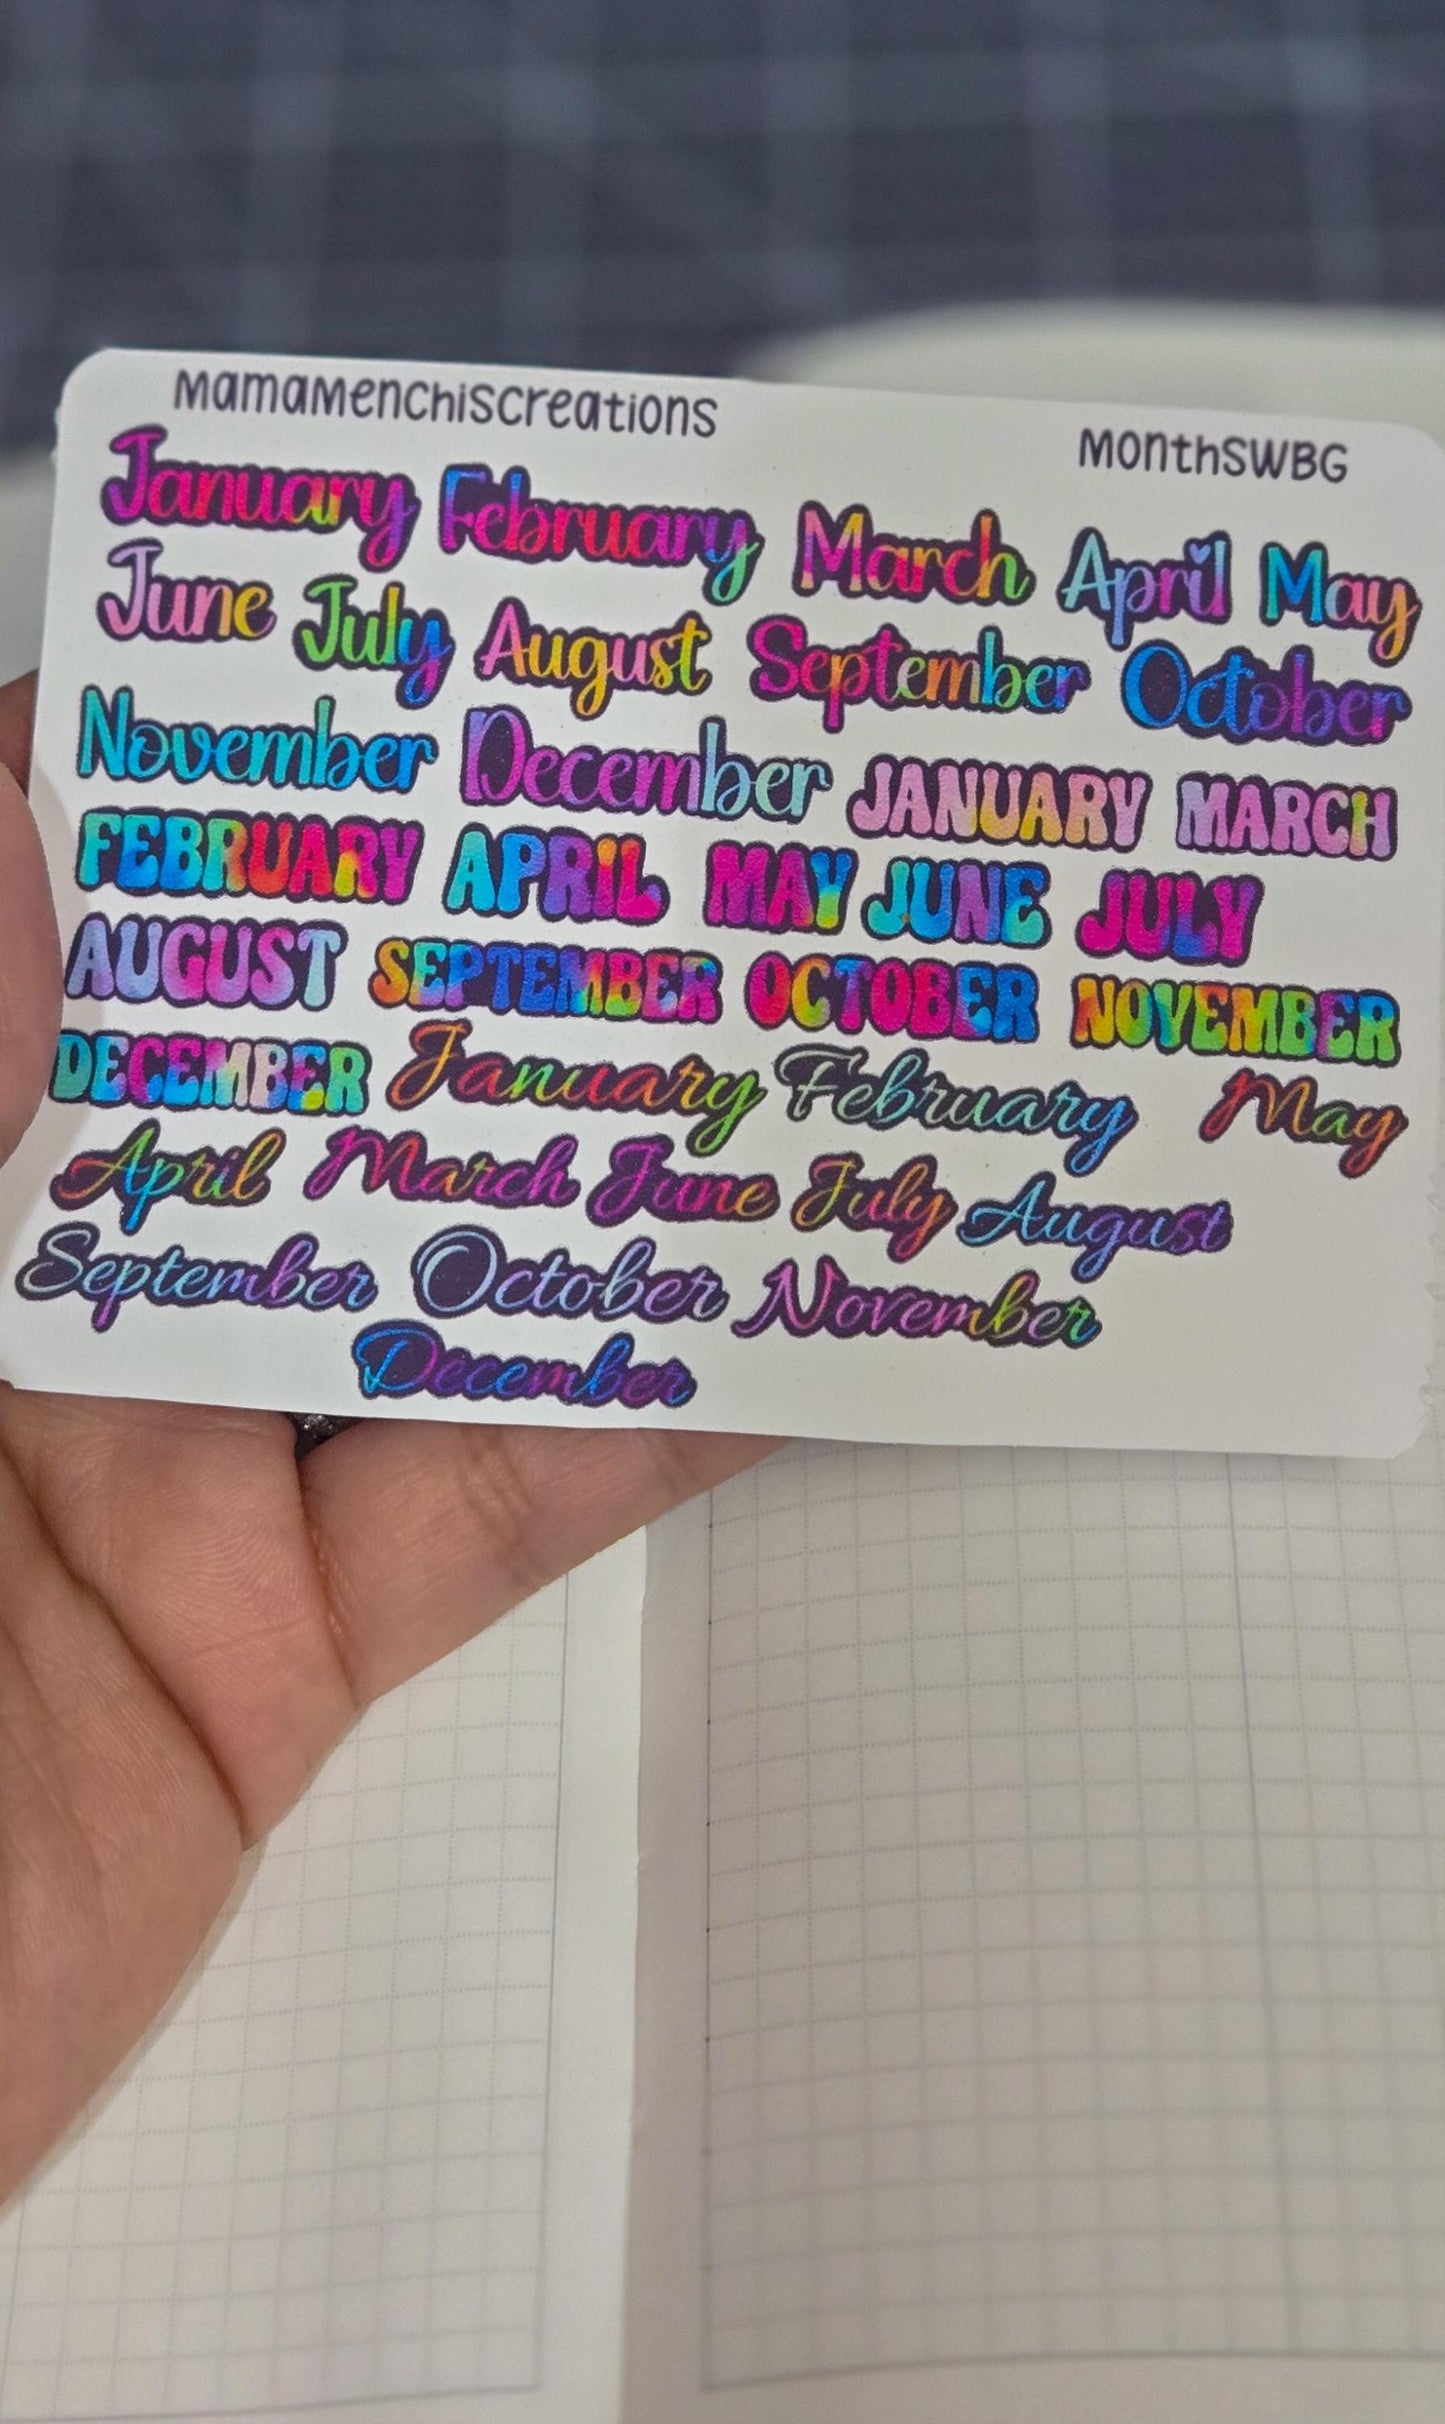 MamaMenchisCreations MonthSWBG
January February March April May
June July August September October
November December JANUARY MARCH
FEBRUARY APRIL MAY JUNE JULY
AUGUST SEPTEMBER OCTOBER NOVEMBER
DECEMBER January February May
April March June July August
September October November
December